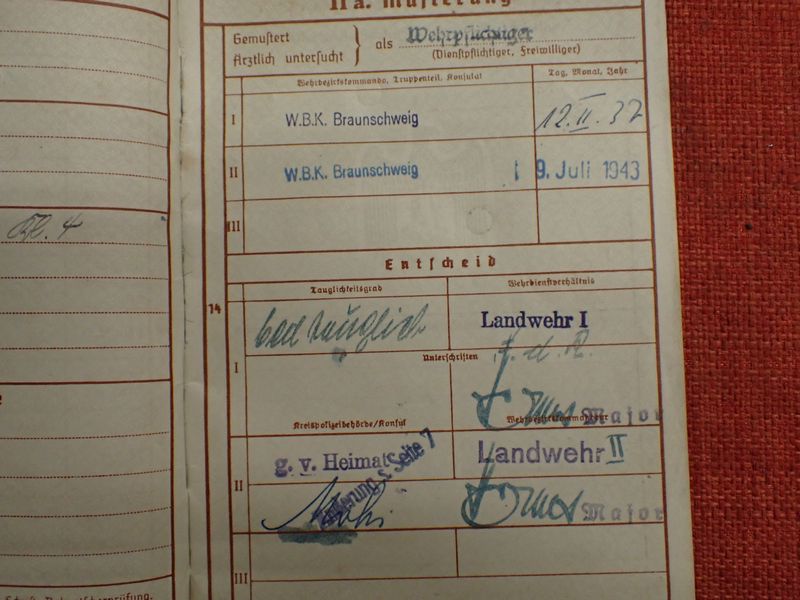 IIa. Musterung
Gemustert
Ärztlich untersucht
als Wehrpflichtiger
(Dienstpflichtiger, Freiwilliger)
Wehrbezirkskommando, Truppenteil, Konsulat
Tag, Monat, Jahr
I W.B.K. Braunschweig 12. II. 37
II W.B.K. Braunschweig 9. Juli 1943
III
Kl. 4
Entscheid
14
Tauglichkeitsgrad
Wehrdienstverhältnis
I bed tauglich Landwehr I
Unterschriften
Kreispolizeibehörde/Konsul
Wehrbezirkskommandeur
Major
II g. v. Heimat Landwehr II
s. Seite 7
Major
III